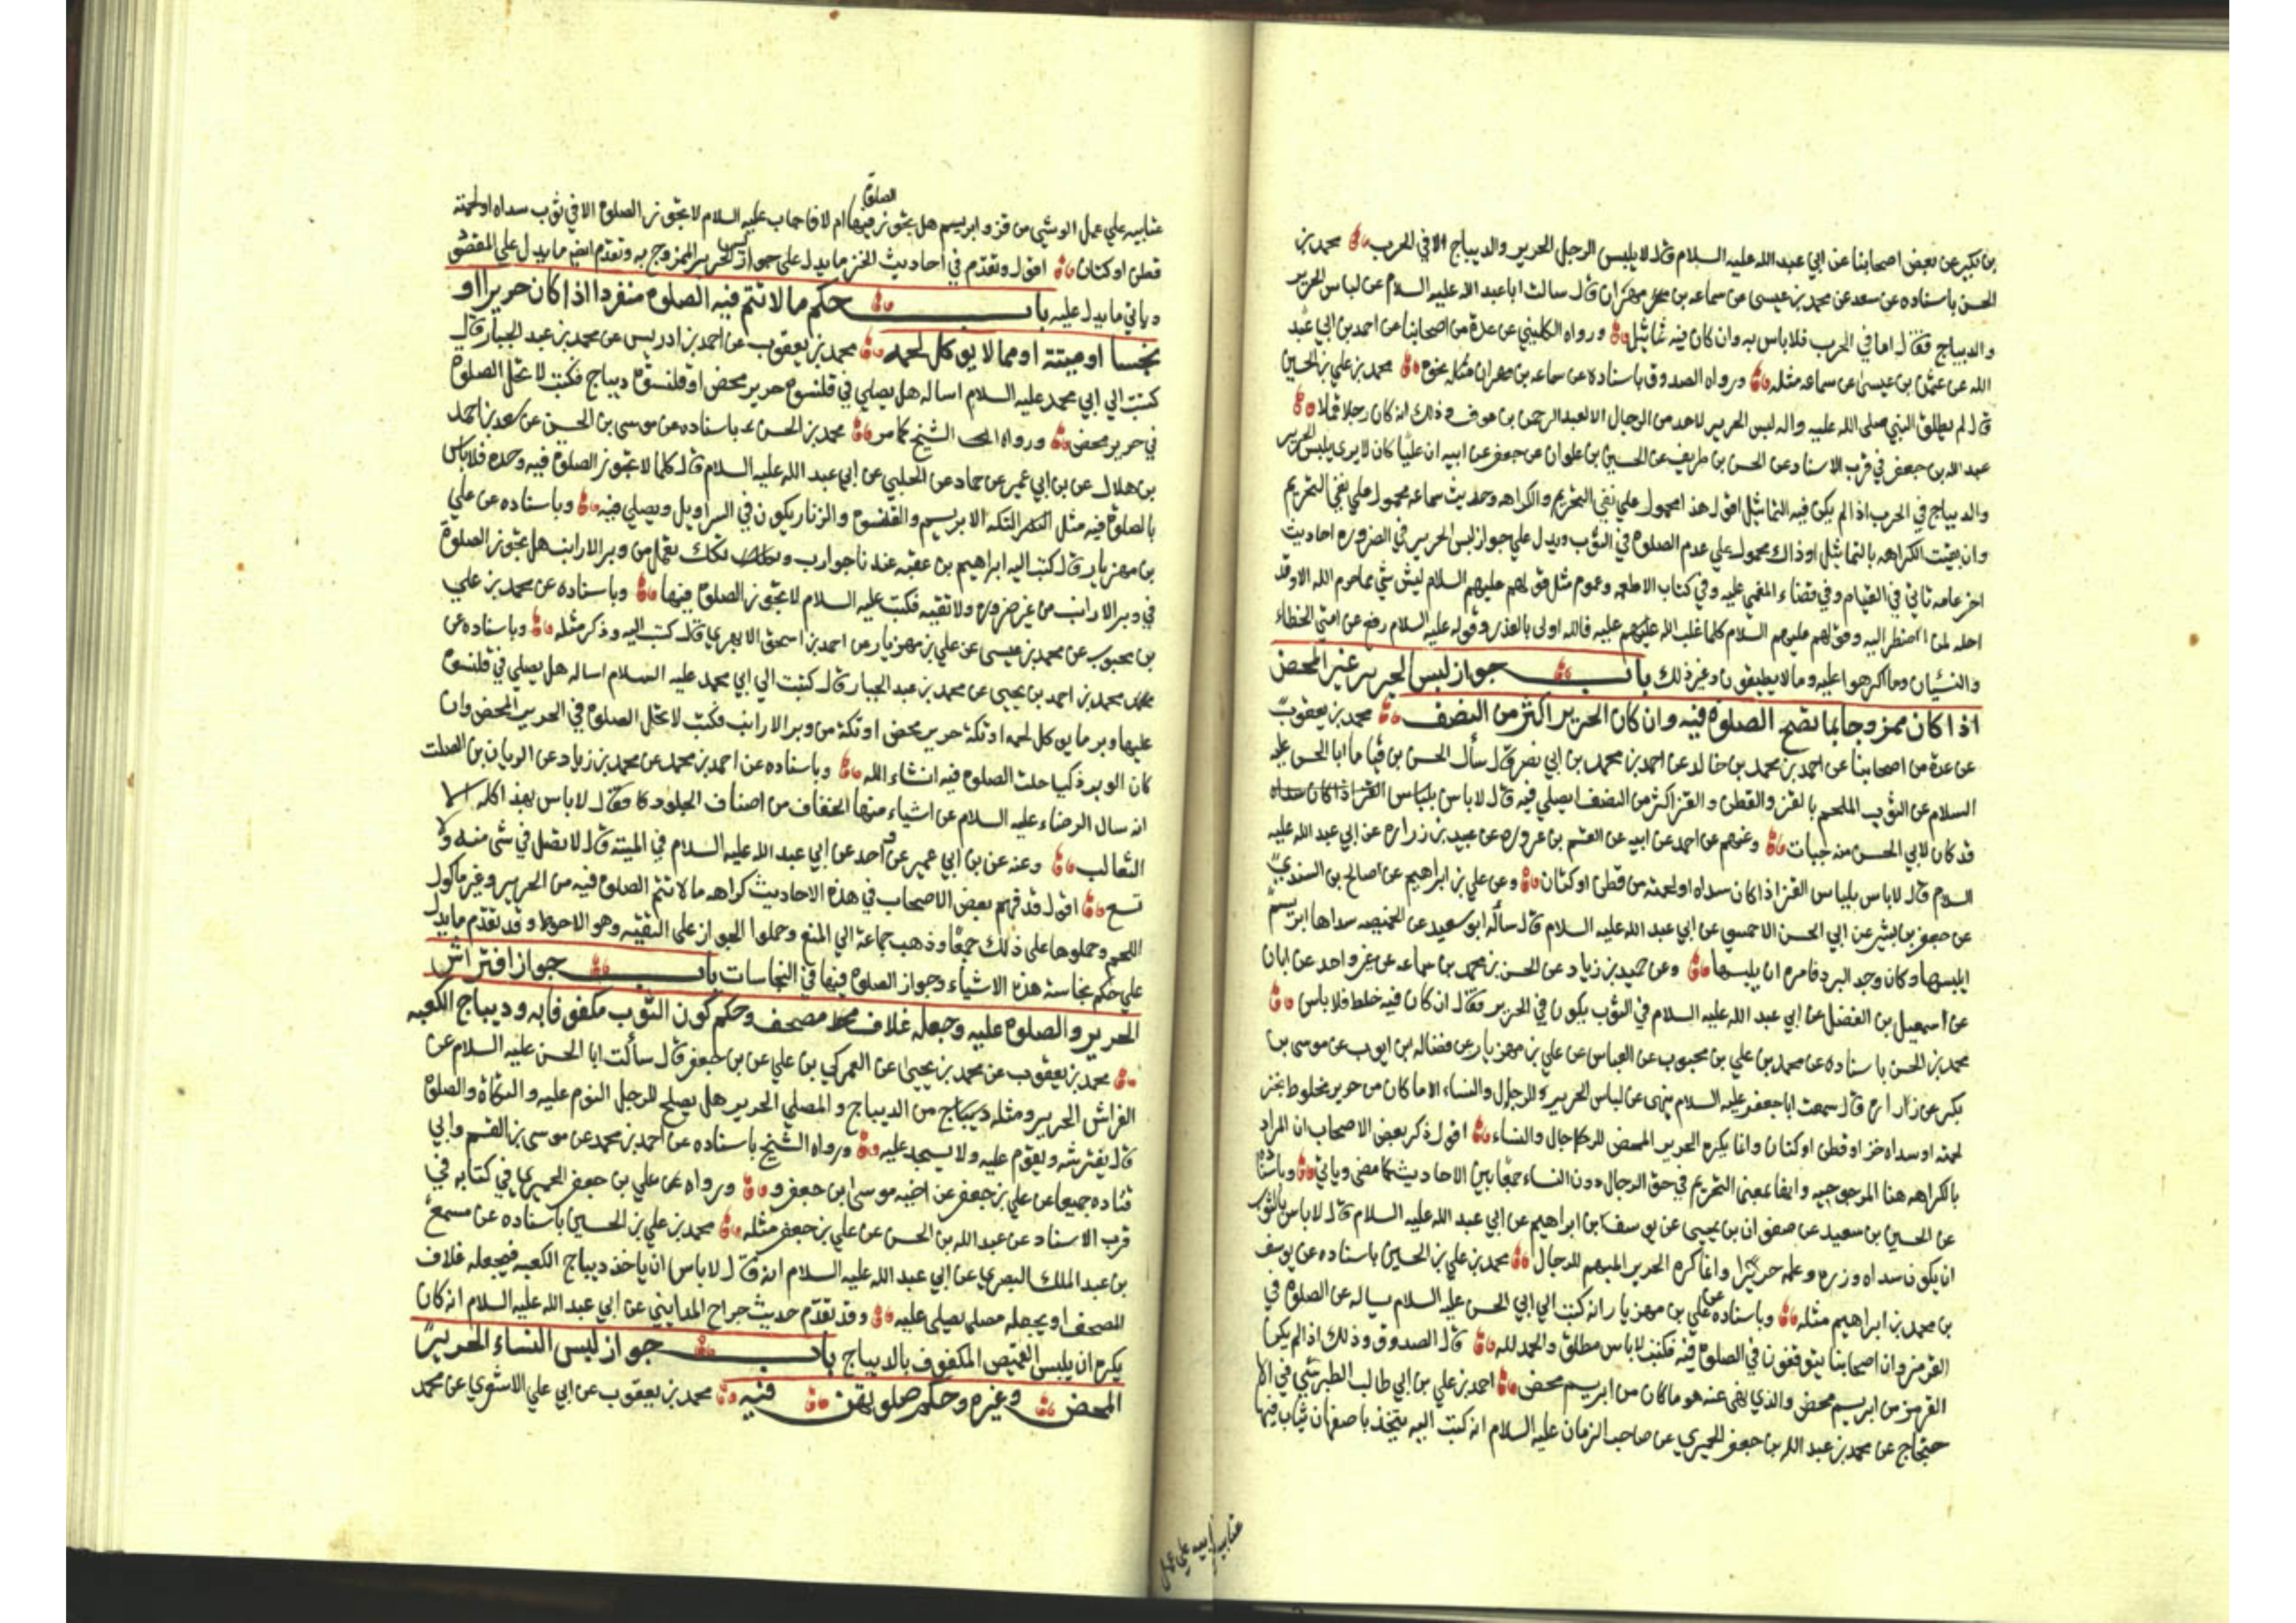 بن بكير عن بعض اصحابنا عن ابي عبد الله عليه السلام قال لا يلبس الرجل الحرير والديباج الا في الحرب محمد بن
الحسن باسناده عن سعد عن محمد بن عيسى عن سماعه بن مهران قال سالت ابا عبد الله عليه السلام عن لباس الحرير
والديباج فقال اما في الحرب فلا باس به وان كان فيه تماثيل ورواه الكليني عن عدة من اصحابنا عن احمد بن ابي عبد
الله عن عثمن بن عيسى عن سماعه مثله ورواه الصدوق باسناده عن سماعه بن مهران مثله محمد بن علي بن الحسين
قال لم يطلق النبي صلى الله عليه واله لبس الحرير لاحد من الرجال الا لعبد الرحمن بن عوف وذلك انه كان رجلا قملا
عبد الله بن جعفر في قرب الاسناد عن الحسن بن ظريف عن الحسين بن علوان عن جعفر عن ابيه ان عليا كان لا يرى بلبس الحرير
والديباج في الحرب اذا لم يكن فيه التماثيل اقول هذا محمول علي نفي التحريم والكراهه وحديث سماعه محمول علي نفي التحريم
وان بقيت الكراهه بالتماثيل او ذاك محمول علي عدم الصلوة في الثوب ويدل علي جواز لبس الحرير في الضروره احاديث
اخر عامه تاتي في القيام وفي قضاء المغمي عليه وفي كتاب الاطعمه وعموم مثل قولهم عليهم السلام ليس شي مما حرم الله الا وقد
احله لمن اضطر اليه وقولهم عليهم السلام كلما غلب الله عليه فالله اولى بالعذر وقوله عليه السلام رفع عن امتي الخطاء
والنسيان وما اكرهوا عليه وما لا يطيقون وغير ذلك باب جواز لبس الحرير غير المحض
اذا كان ممزوجا بما تصح الصلوة فيه وان كان الحرير اكثر من النصف محمد بن يعقوب
عن عدة من اصحابنا عن احمد بن محمد بن خالد عن احمد بن محمد بن ابي نصر قال سأل الحسن بن قياما ابا الحسن عليه
السلام عن الثوب الملحم بالقز والقطن والقز اكثر من النصف ايصلي فيه قال لا باس بلباس القز اذا كان سداه
قد كان لابي الحسن منه جبات وعنهم عن احمد عن ابيه عن القسم بن عروه عن عبيد بن زراره عن ابي عبد الله عليه
السلام قال لا باس بلباس القز اذا كان سداه او لحمته من قطن او كتان وعن علي بن ابراهيم عن صالح بن السندي
عن جعفر بن بشير عن ابي الحسن الاحمسي عن ابي عبد الله عليه السلام قال سأله ابو سعيد عن الخميصه سداها ابريسم
ايلبسها وكان وجد البرد فامره ان يلبسها وعن حميد بن زياد عن الحسن بن محمد بن سماعه عن غير واحد عن ابان
عن اسمعيل بن الفضل عن ابي عبد الله عليه السلام في الثوب يكون في الحرير فقال ان كان فيه خلط فلا باس
محمد بن الحسن باسناده عن محمد بن علي بن محبوب عن العباس عن علي بن مهزيار عن فضاله بن ايوب عن موسى بن
بكر عن زراره قال سمعت ابا جعفر عليه السلام ينهى عن لباس الحرير للرجال والنساء الا ما كان من حرير مخلوط بخز
لحمته او سداه خز او قطن او كتان وانما يكره الحرير المحض للرجال والنساء اقول ذكر بعض الاصحاب ان المراد
بالكراهه هنا المرجوحيه وانها بمعنى التحريم في حق الرجال دون النساء جمعا بين الاحاديث كما مضى وياتي وباسناده
عن الحسين بن سعيد عن صفوان بن يحيى عن يوسف بن ابراهيم عن ابي عبد الله عليه السلام قال لا باس بالثوب
ان يكون سداه وزره وعلمه حريرا وانما كره الحرير المبهم للرجال محمد بن علي بن الحسين باسناده عن يوسف
بن محمد بن ابراهيم مثله وباسناده عن علي بن مهزيار انه كتب الي ابي الحسن عليه السلام يساله عن الصلوة في
القرمز وان اصحابنا يتوقفون في الصلوة فيه فكتب لا باس مطلق والحمد لله قال الصدوق وذلك اذا لم يكن
القرمز من ابريسم محض والذي نهي عنه هو ما كان من ابريسم محض احمد بن علي بن ابي طالب الطبرسي في الا
حتجاج عن محمد بن عبد الله بن جعفر الحميري عن صاحب الزمان عليه السلام انه كتب اليه يتخذ باصفهان ثياب فيها
عتابيه علي عمل
الصلوة
عتابيه علي عمل الوشي من قز وابريسم هل يجوز فيها ام لا فاجاب عليه السلام لا يجوز الصلوة الا في ثوب سداه او لحمته
قطن او كتان اقول وتقدم في احاديث الخز ما يدل علي جواز لبس الحرير الممزوج به وتقدم ايضا ما يدل علي المقصود
وياتي ما يدل عليه باب حكم ما لا تتم فيه الصلوة منفردا اذا كان حريرا او
نجسا او ميتة او مما لا يوكل لحمه محمد بن يعقوب عن احمد بن ادريس عن محمد بن عبد الجبار قال
كتبت الي ابي محمد عليه السلام اساله هل يصلي في قلنسوة حرير محض او قلنسوة ديباج فكتب لا تحل الصلوة
في حرير محض ورواه الشيخ كما مر محمد بن الحسن باسناده عن موسى بن الحسن عن احمد
بن هلال عن بن ابي عمير عن حماد عن الحلبي عن ابي عبد الله عليه السلام قال كلما لا تجوز الصلوة فيه وحده فلا باس
بالصلوة فيه مثل التكه الابريسم والقلنسوة والزنار يكون في السراويل ويصلي فيه وباسناده عن علي
بن مهزيار قال كتب اليه ابراهيم بن عقبه عندنا جوارب وتكك تعمل من وبر الارانب هل تجوز الصلوة
في وبر الارانب من غير ضروره ولا تقيه فكتب عليه السلام لا تجوز الصلوة فيها وباسناده عن محمد بن علي
بن محبوب عن محمد بن عيسى عن علي بن مهزيار عن احمد بن اسحق الابهري قال كتبت اليه وذكر مثله وباسناده عن
محمد بن احمد بن يحيى عن محمد بن عبد الجبار قال كتبت الي ابي محمد عليه السلام اساله هل يصلي في قلنسوة
عليها وبر ما يوكل لحمه او تكة حرير محض او تكة من وبر الارانب فكتب لا تحل الصلوة في الحرير المحض وان
كان الوبر ذكيا حلت الصلوة فيه انشاء الله وباسناده عن احمد بن محمد عن محمد بن زياد عن الريان بن الصلت
انه سال الرضاء عليه السلام عن اشياء منها الخفاف من اصناف الجلود فقال لا باس بهذا كله الا
الثعالب وعنه عن بن ابي عمير عن غير واحد عن ابي عبد الله عليه السلام في الميتة قال لا تصل في شي منه ولا
شسع اقول قد فهم بعض الاصحاب في هذه الاحاديث كراهه ما لا تتم الصلوة فيه من الحرير وغير ماكول
اللحم وحملوها على ذلك جمعا وذهب جماعة الي المنع وحملوا الجواز على التقيه وهو الاحوط وقد تقدم ما يدل
علي حكم نجاسة هذه الاشياء وجواز الصلوة فيها في النجاسات باب جواز افتراش
الحرير والصلوة عليه وجعله غلاف مصحف وحكم كون الثوب مكفوفا به وديباج الكعبه
محمد بن يعقوب عن محمد بن يحيى عن العمركي بن علي عن علي بن جعفر قال سألت ابا الحسن عليه السلام عن
الفراش الحرير ومثله من الديباج والمصلي الحرير هل يصلح للرجل النوم عليه والتكاة والصلوة
قال يفترشه ويقوم عليه ولا يسجد عليه ورواه الشيخ باسناده عن احمد بن محمد عن موسى بن القسم وابي
قتاده جميعا عن علي بن جعفر عن اخيه موسى بن جعفر ورواه عن علي بن جعفر الحميري في كتابه في
قرب الاسناد عن عبد الله بن الحسن عن علي بن جعفر مثله محمد بن علي بن الحسين باسناده عن مسمع
بن عبد الملك البصري عن ابي عبد الله عليه السلام انه قال لا باس ان ياخذ ديباج الكعبه فيجعله غلاف
المصحف او يجعله مصلى يصلي عليه وقد تقدم حديث جراح المدايني عن ابي عبد الله عليه السلام انه كان
يكره ان يلبس القميص المكفوف بالديباج باب جواز لبس النساء الحرير
المحض وغيره وحكم صلوتهن فيه محمد بن يعقوب عن ابي علي الاشعري عن محمد